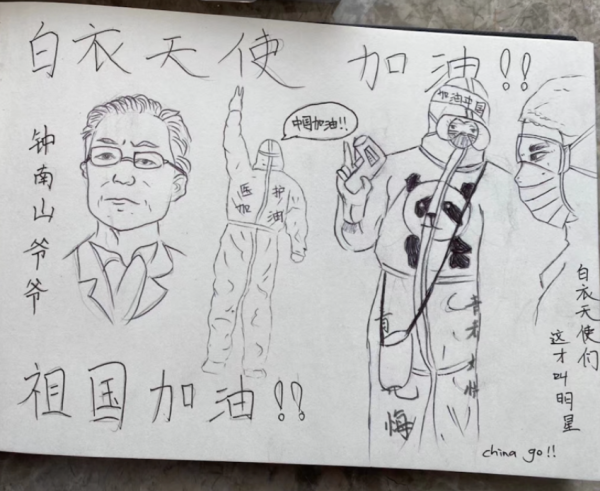 白衣天使 加油!!
钟南山爷爷
中国加油!!
医护
加油
加油中国
白衣天使们
这才叫明星
祖国加油!!
china go!!